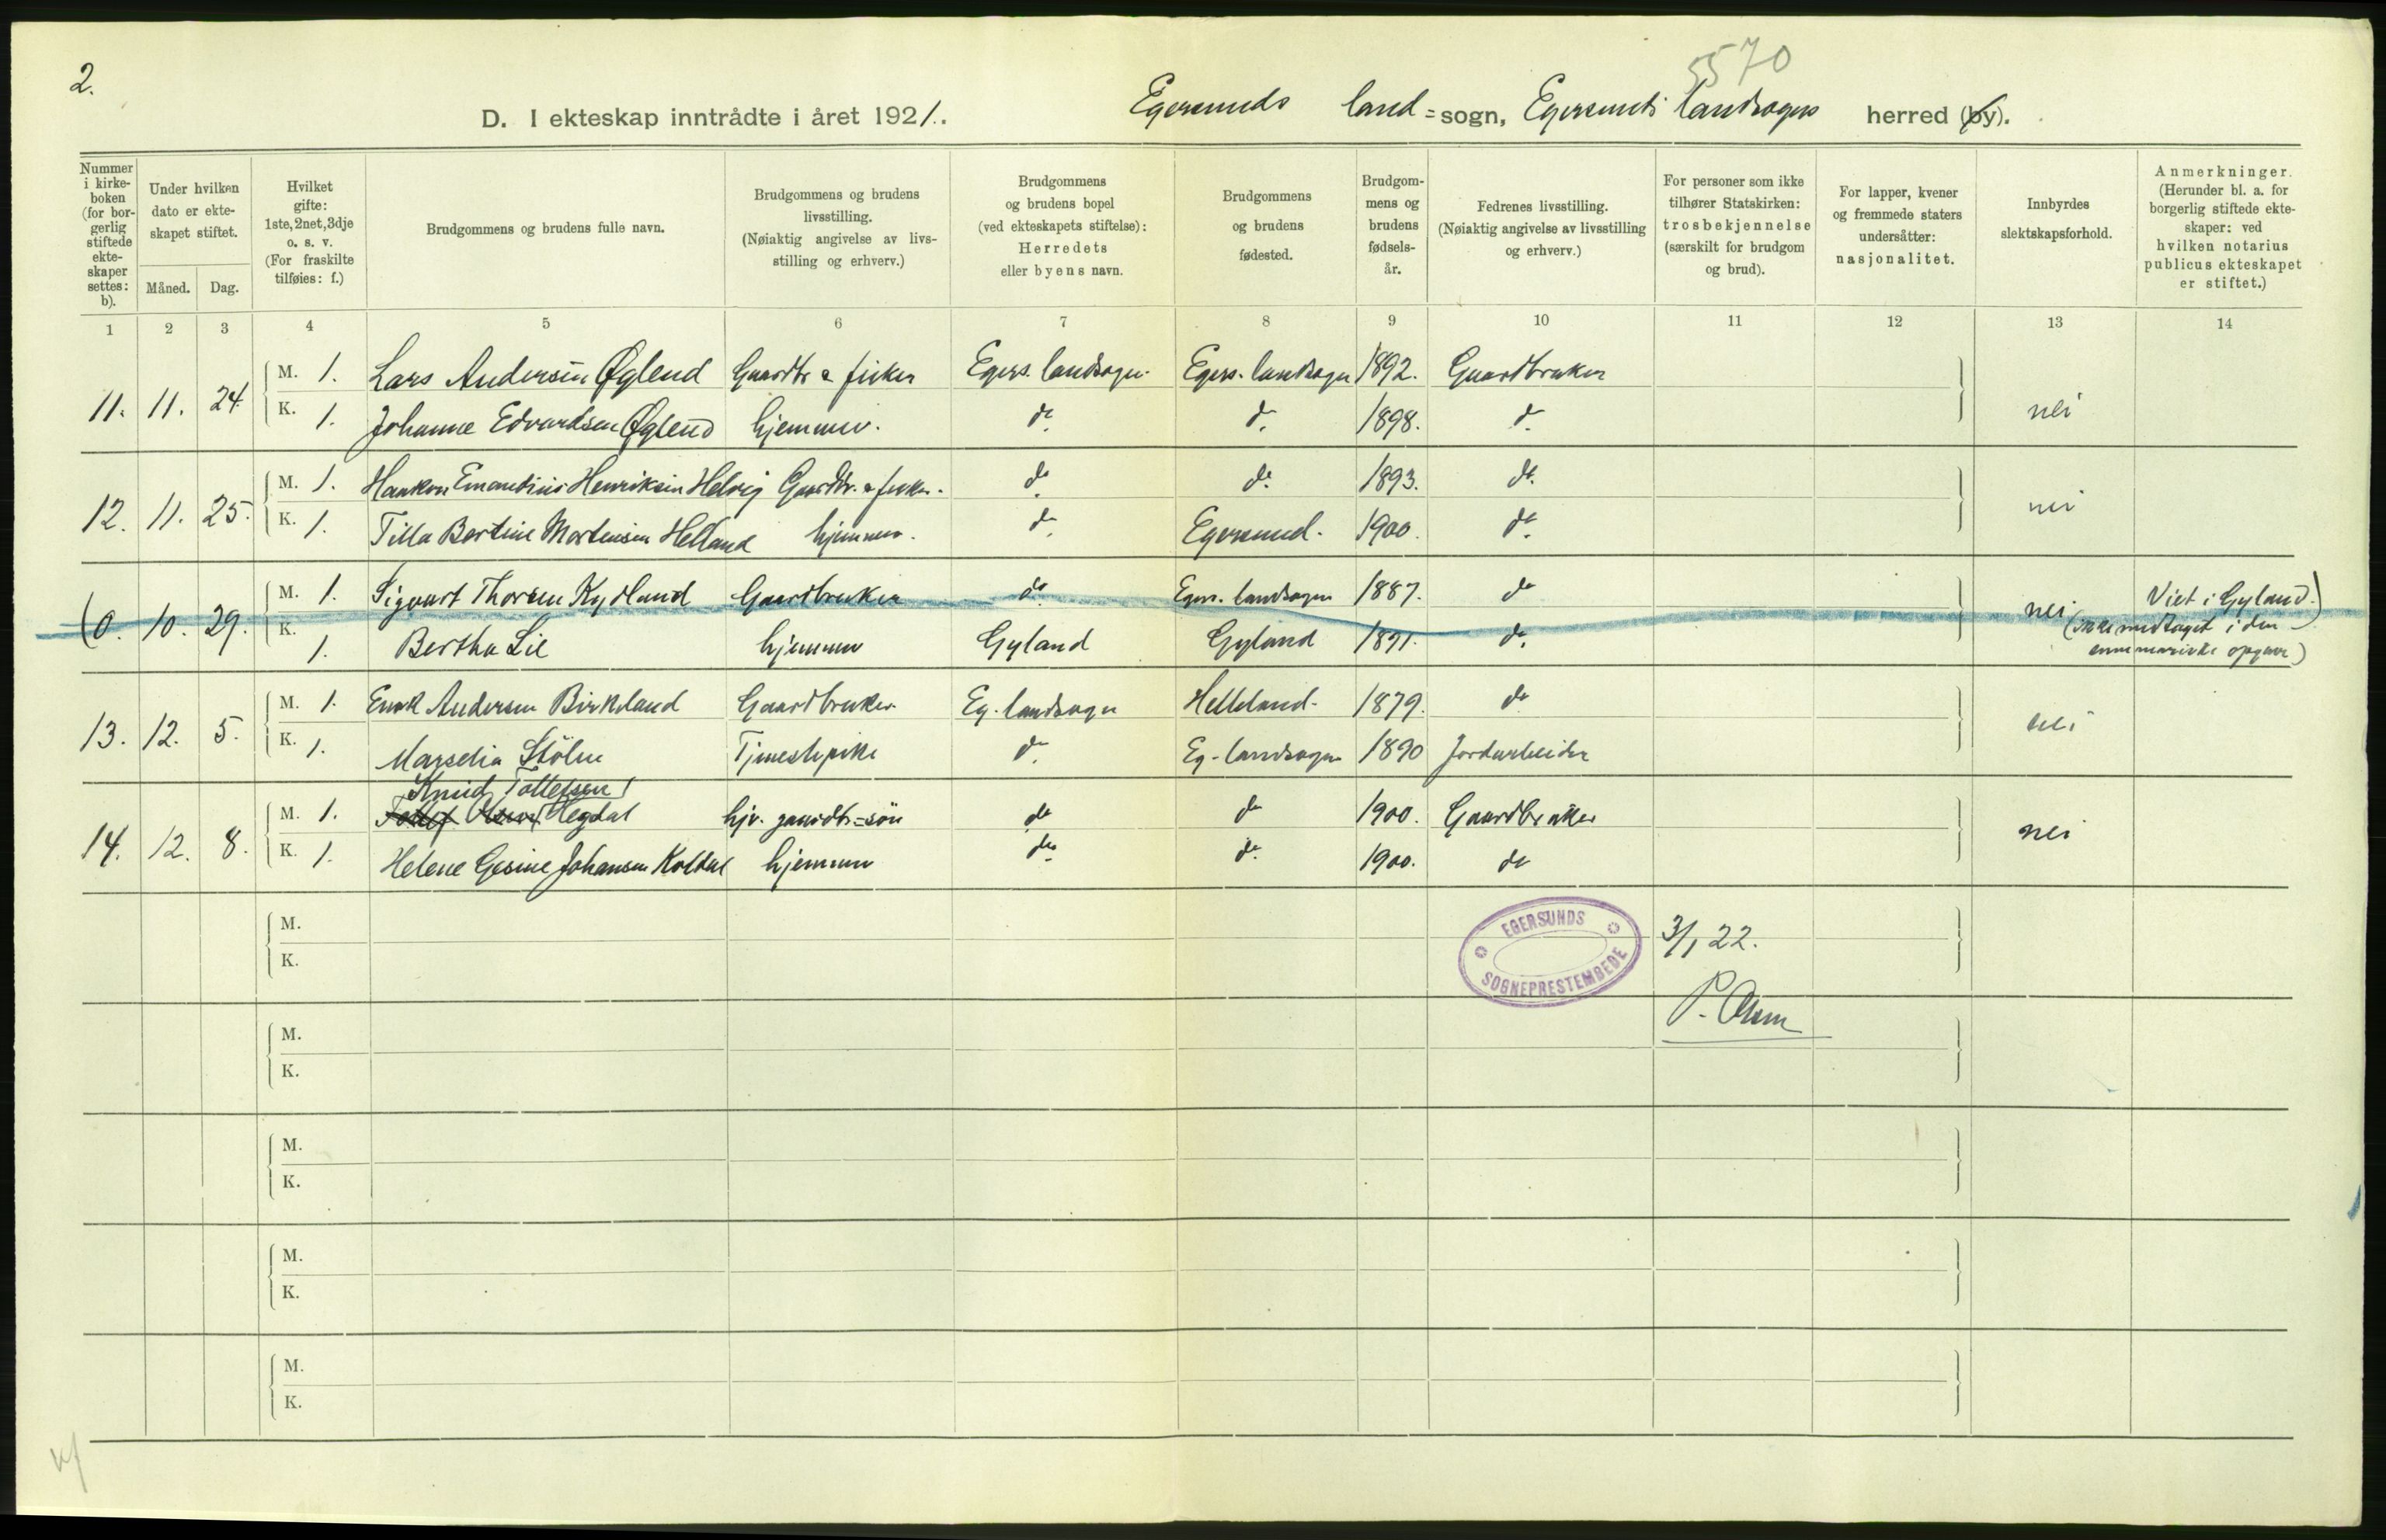 5570
2.
D. I ekteskap inntrådte i året 1921. Egersunds land=sogn, Egersunds landsogns herred (by).
Nummer i kirke-boken (for bor-gerlig stiftede ekte-skaper settes: b).
Under hvilken dato er ekte-skapet stiftet.
Måned. Dag.
Hvilket gifte: 1ste, 2net, 3dje o. s. v. (For fraskilte tilføies: f.)
Brudgommens og brudens fulle navn.
Brudgommens og brudens livsstilling. (Nøiaktig angivelse av livs-stilling og erhverv.)
Brudgommens og brudens bopel (ved ekteskapets stiftelse): Herredets eller byens navn.
Brudgommens og brudens fødested.
Brudgom-mens og brudens fødsels-år.
Fedrenes livsstilling. (Nøiaktig angivelse av livsstilling og erhverv.)
For personer som ikke tilhører Statskirken: trosbekjennelse (særskilt for brudgom og brud).
For lapper, kvener og fremmede staters undersåtter: nasjonalitet.
Innbyrdes slektskapsforhold.
Anmerkninger. (Herunder bl. a. for borgerlig stiftede ekte-skaper: ved hvilken notarius publicus ekteskapet er stiftet.)
1 2 3 4 5 6 7 8 9 10 11 12 13 14
M. 1. Lars Andersen Øglend Gaardbr & fisker Egers. landsogn Egers. landsogn 1892. Gaardbruker
11. 11. 24. nei
K. 1. Johanne Edvardsen Øglend hjemmev. do. do. 1898. do.
M. 1. Haakon Henriksen Helvig Gaardbr. & fisker. do. do. 1893. do.
12. 11. 25. nei
K. 1. Tilla Bertine Mortensen Helland hjemmev. do. Egersund. 1900. do.
M. 1. Sigvart Thorsen Kydland Gaardbruker do. Egers. landsogn 1887. do
(0. 10. 29. nei Viet i Gyland.)
K. 1. Bertha Lie hjemmev Gyland Gyland 1891. do.
(ikke medtaget i den
summariske opgave)
M. 1. Enok Andersen Birkeland Gaardbruker Eg. landsogn Helleland. 1879. do
13. 12. 5. nei
K. 1. Marselia Stölen Tjenestepike do. Eg. landsogn 1890 Jordarbeider
Knud Tollefsen
M. 1. Tollef Olsen Hegdal hjv. gaardbr=sön do do 1900. Gaardbruker
14. 12. 8. nei
K. 1. Helene Gesine Johansen Koldal hjemmev do. do. 1900. do
M.
K.
EGERSUNDS SOGNEPRESTEMBEDE
3/1 22.
P. Olsen
M.
K.
M.
K.
M.
K.
M.
K.